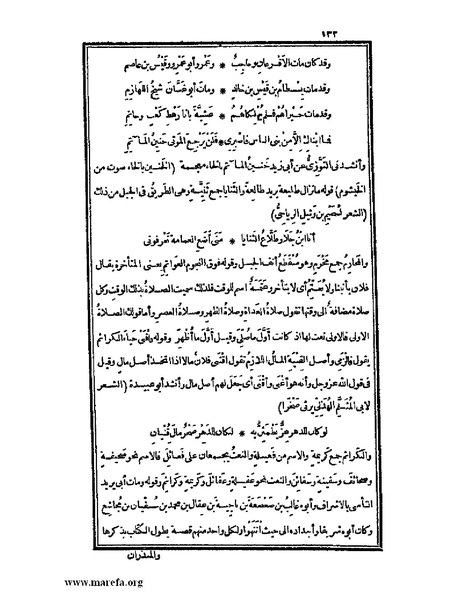 ١٣٣
وقد كان مات الأقرعان وحاجبٌ * وعمرو أبو عمرو وقيس بن عاصم
وقد مات بِسطامُ بن قيس بن خالد * ومات أبو غسّان شيخُ اللهازم
وقد مات خيراهم فلم يُهلكاهُمُ * عشيّة بانا رهطِ كعب وحاتم
فما ابناكِ الّا من بنى الناس فاصبرى * فلن يرجع الموتى حنينُ المآتم
وأنشدنى التوّزىّ عن أبى زيد خنين المآتم بالخاء معجمة (الخنين بالخاء صوت من
الخيشوم) قوله مازال طليعة يريد طالعة والثنايا جمع ثنيّة وهى الطريق فى الجبل من ذلك
(الشعر لسُحَيم بن وثيل الرياحىّ)
أنا ابنُ جلا وطلّاعُ الثنايا * متى أضع العمامة تعرفونى
والمخارم جمع مَخْرِم وهو مُنقطَع أنف الجبل وقوله فوق النجوم العواتم يعنى المتأخرة يقال
فلان يأتينا ولا يُعتم أى لا يتأخر وعتمةٌ اسم للوقت فلذلك سميت الصلاة بذلك الوقت وكل
صلاة مضافة الى وقتها تقول صلاة الغداة وصلاة الظهر وصلاة العصر وأما قولك الصلاة
الاولى فالاولى نعت لها اذ كانت أوّل ما صُلّى وقيل أوّل ما أُظهر وقوله واقْنَىْ حياءَ الكرائم
يقول فالزمى وأصل القِنية المالُ اللازم تقول اقتنى فلان مالا اذا اتخذ أصل مال وقيل
فى قول الله عز وجل وأنه هو أغنى وأقنى أى جعل لهم أصل مال وأنشد أبو عبيدة (الشعر
لأبى المُثلّم الهُذَلىّ يرثى صَخْرا)
لو كان للدهر عزٌّ يطمئنّ به * لكان للدهر صخرٌ مالَ قُنيان
والكرائم جمع كريمة والاسم من فعيلة والنعت يجمعان على فعائل فالاسم نحو صحيفة
وصحائف وسفينة وسفائن والنعت نحو عقيلة وعقائل وكريمة وكرائم وقوله ومات أبى يريد
التأسى بالاشراف وأبوه غالب بن صعصعة بن ناجية بن عقال بن محمد بن سفيان بن مجاشع
وكان أبوه شريفا وأجداده الى حيث انتهَوا ولكل واحد منهم قصة يطول الكتاب بذكرها
والمنذران
www.marefa.org